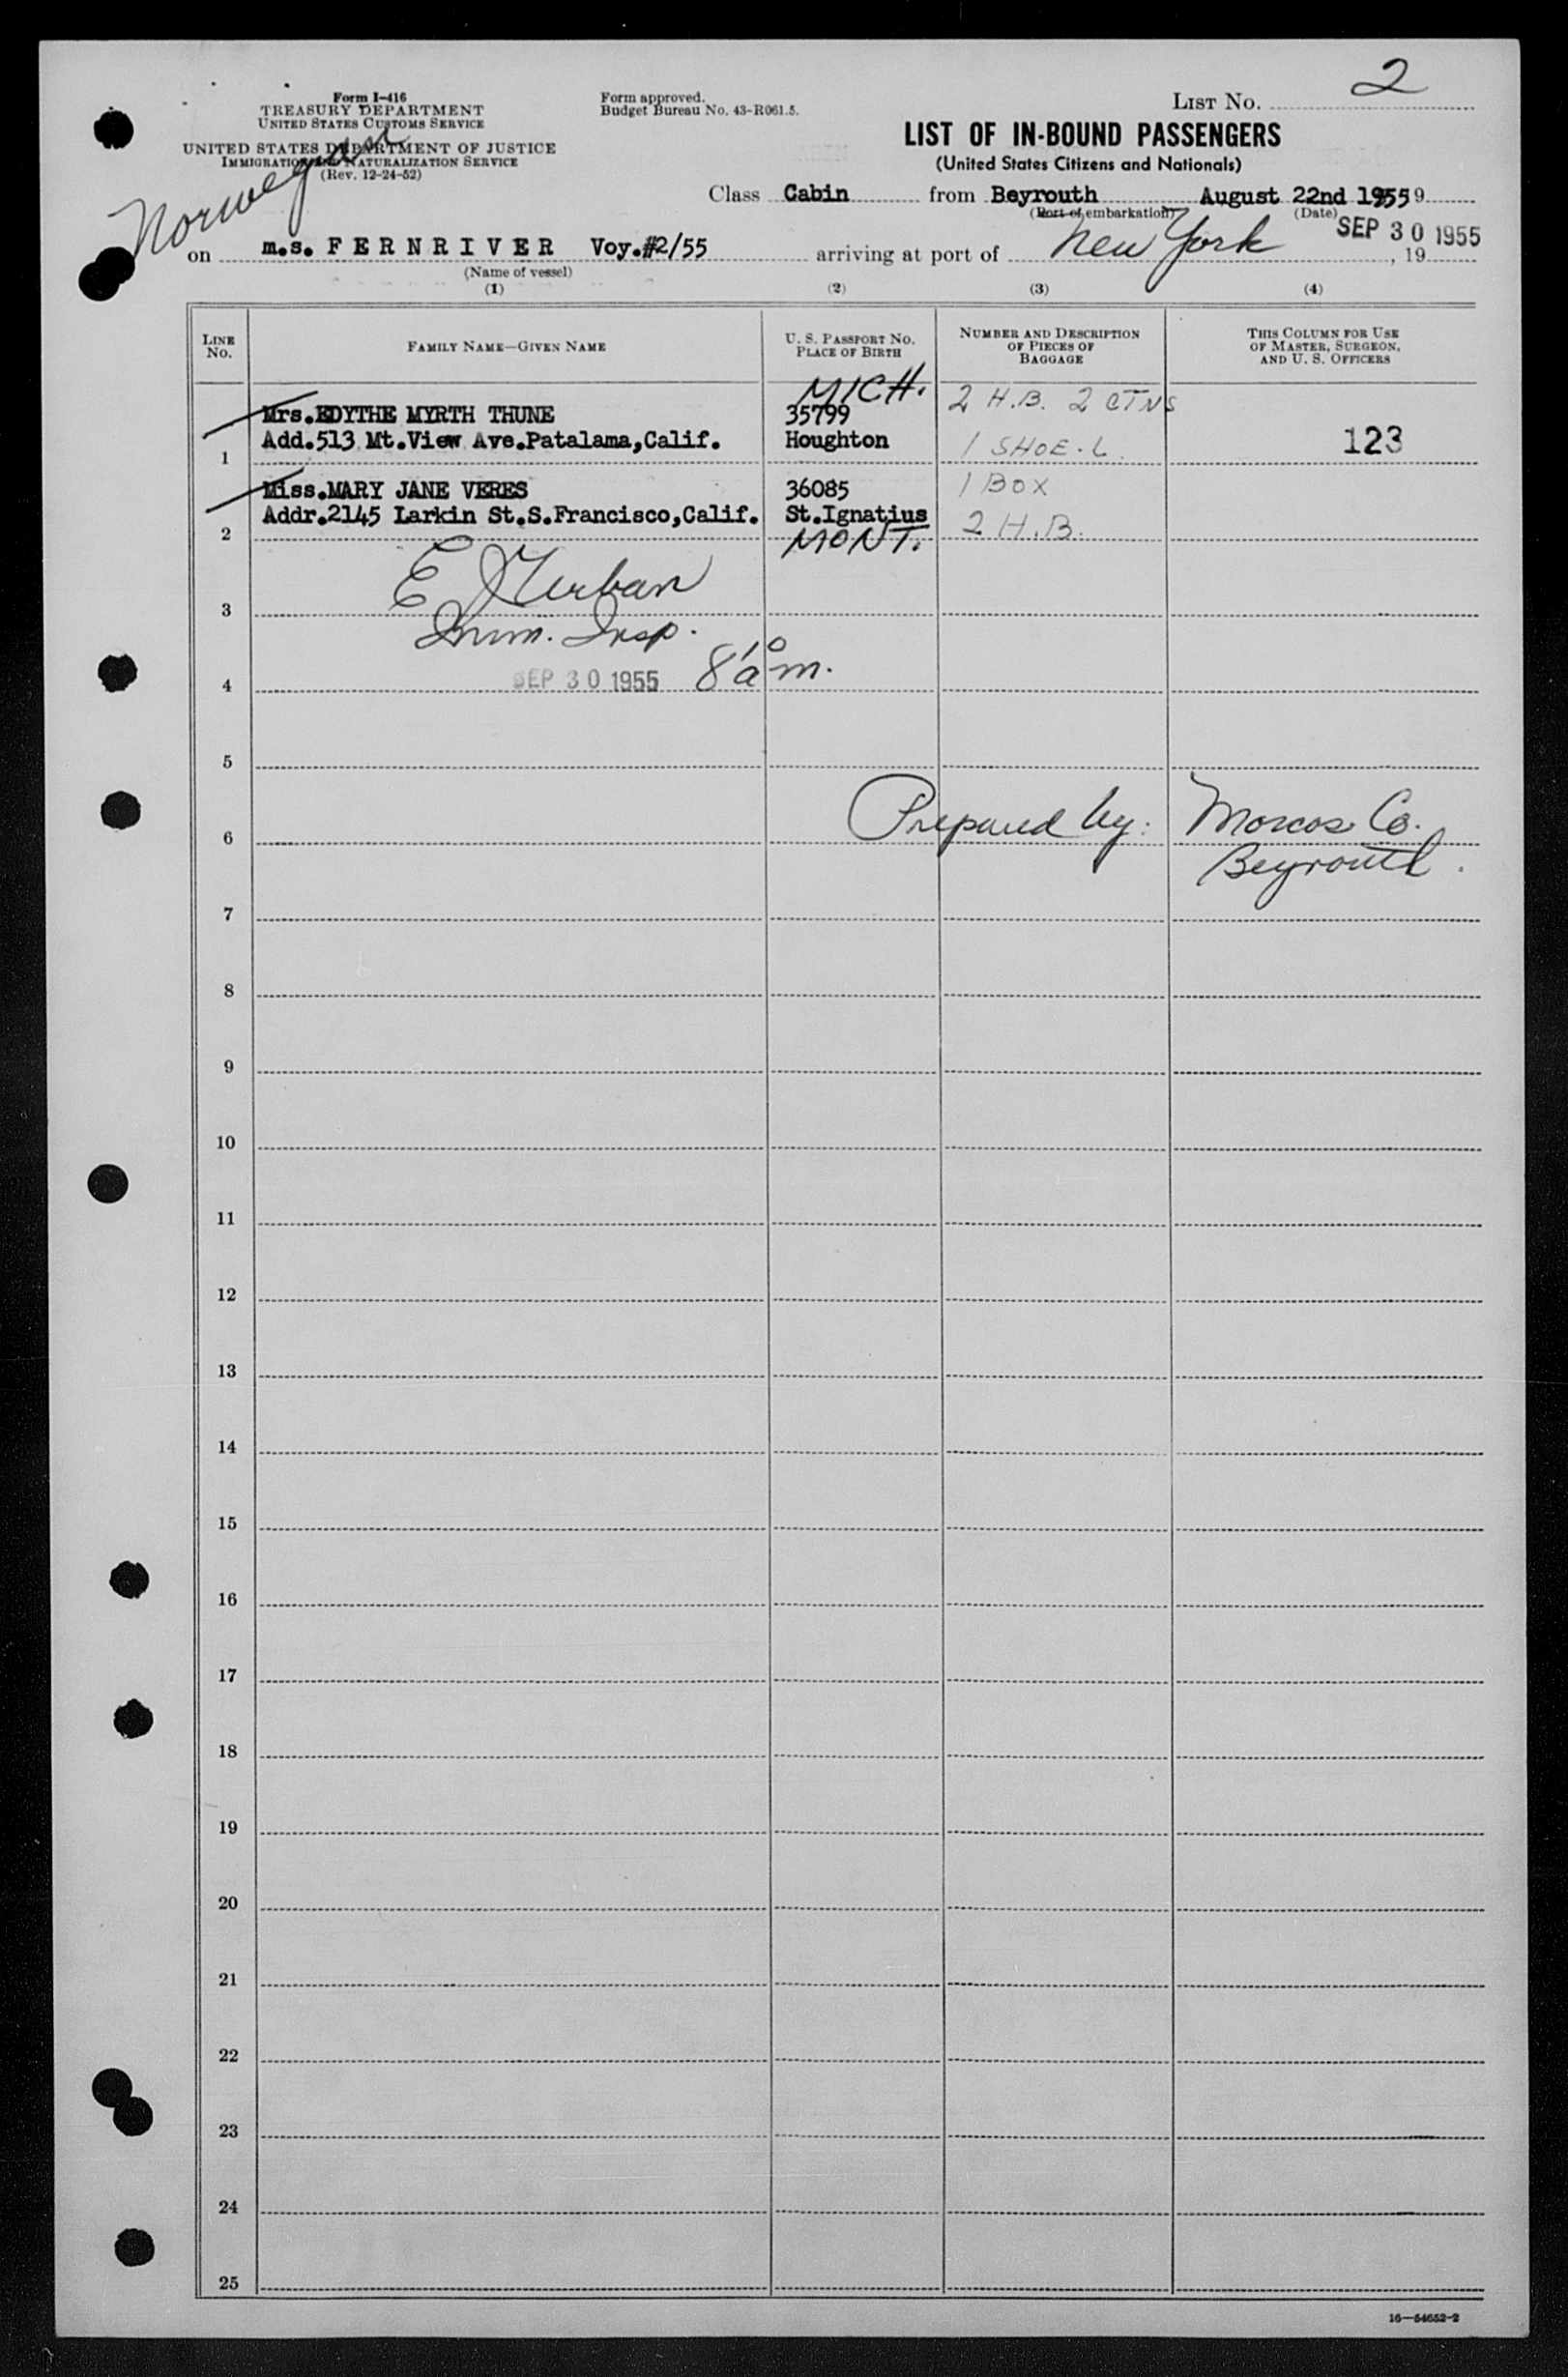 2
Form I-416
TREASURY DEPARTMENT
UNITED STATES CUSTOMS SERVICE
UNITED STATES DEPARTMENT OF JUSTICE
IMMIGRATION AND NATURALIZATION SERVICE
(Rev. 12-24-52)
Norwegian
Form approved.
Budget Bureau No. 43-R061.5.
LIST NO.
LIST OF IN-BOUND PASSENGERS
(United States Citizens and Nationals)
Class Cabin from Beyrouth August 22nd 1955
(Port of embarkation) (Date)
on m.s. FERNRIVER Voy.#2/55 arriving at port of New York SEP 30 1955, 19
(Name of vessel)
(1) (2) (3) (4)
LINE NO. FAMILY NAME—GIVEN NAME U. S. PASSPORT NO. PLACE OF BIRTH NUMBER AND DESCRIPTION OF PIECES OF BAGGAGE THIS COLUMN FOR USE OF MASTER, SURGEON, AND U. S. OFFICERS
MICH. 2 H.B. 2 CTNS
Mrs.EDYTHE MYRTH THUNE 35799
1 Add.513 Mt.View Ave.Patalama,Calif. Houghton 1 SHOE. L. 123
Miss.MARY JANE VERES 36085 1 BOX
2 Addr.2145 Larkin St.S.Francisco,Calif. St.Ignatius 2 H.B.
MONT.
3
Imm. Insp.
4 SEP 30 1955 8 10 am.
5
6 Prepared by: Morcos Co.
Beyrouth.
7
8
9
10
11
12
13
14
15
16
17
18
19
20
21
22
23
24
25
16—54652-2